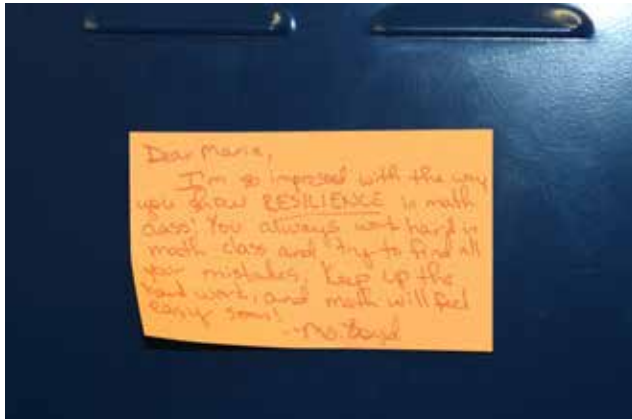 Dear Marie,
I'm so impressed with the way
you show RESILIENCE in math
class! You always work hard in
math class and try to find all
your mistakes. Keep up the
hard work, and math will feel
easy soon!
-Ms. Boyd